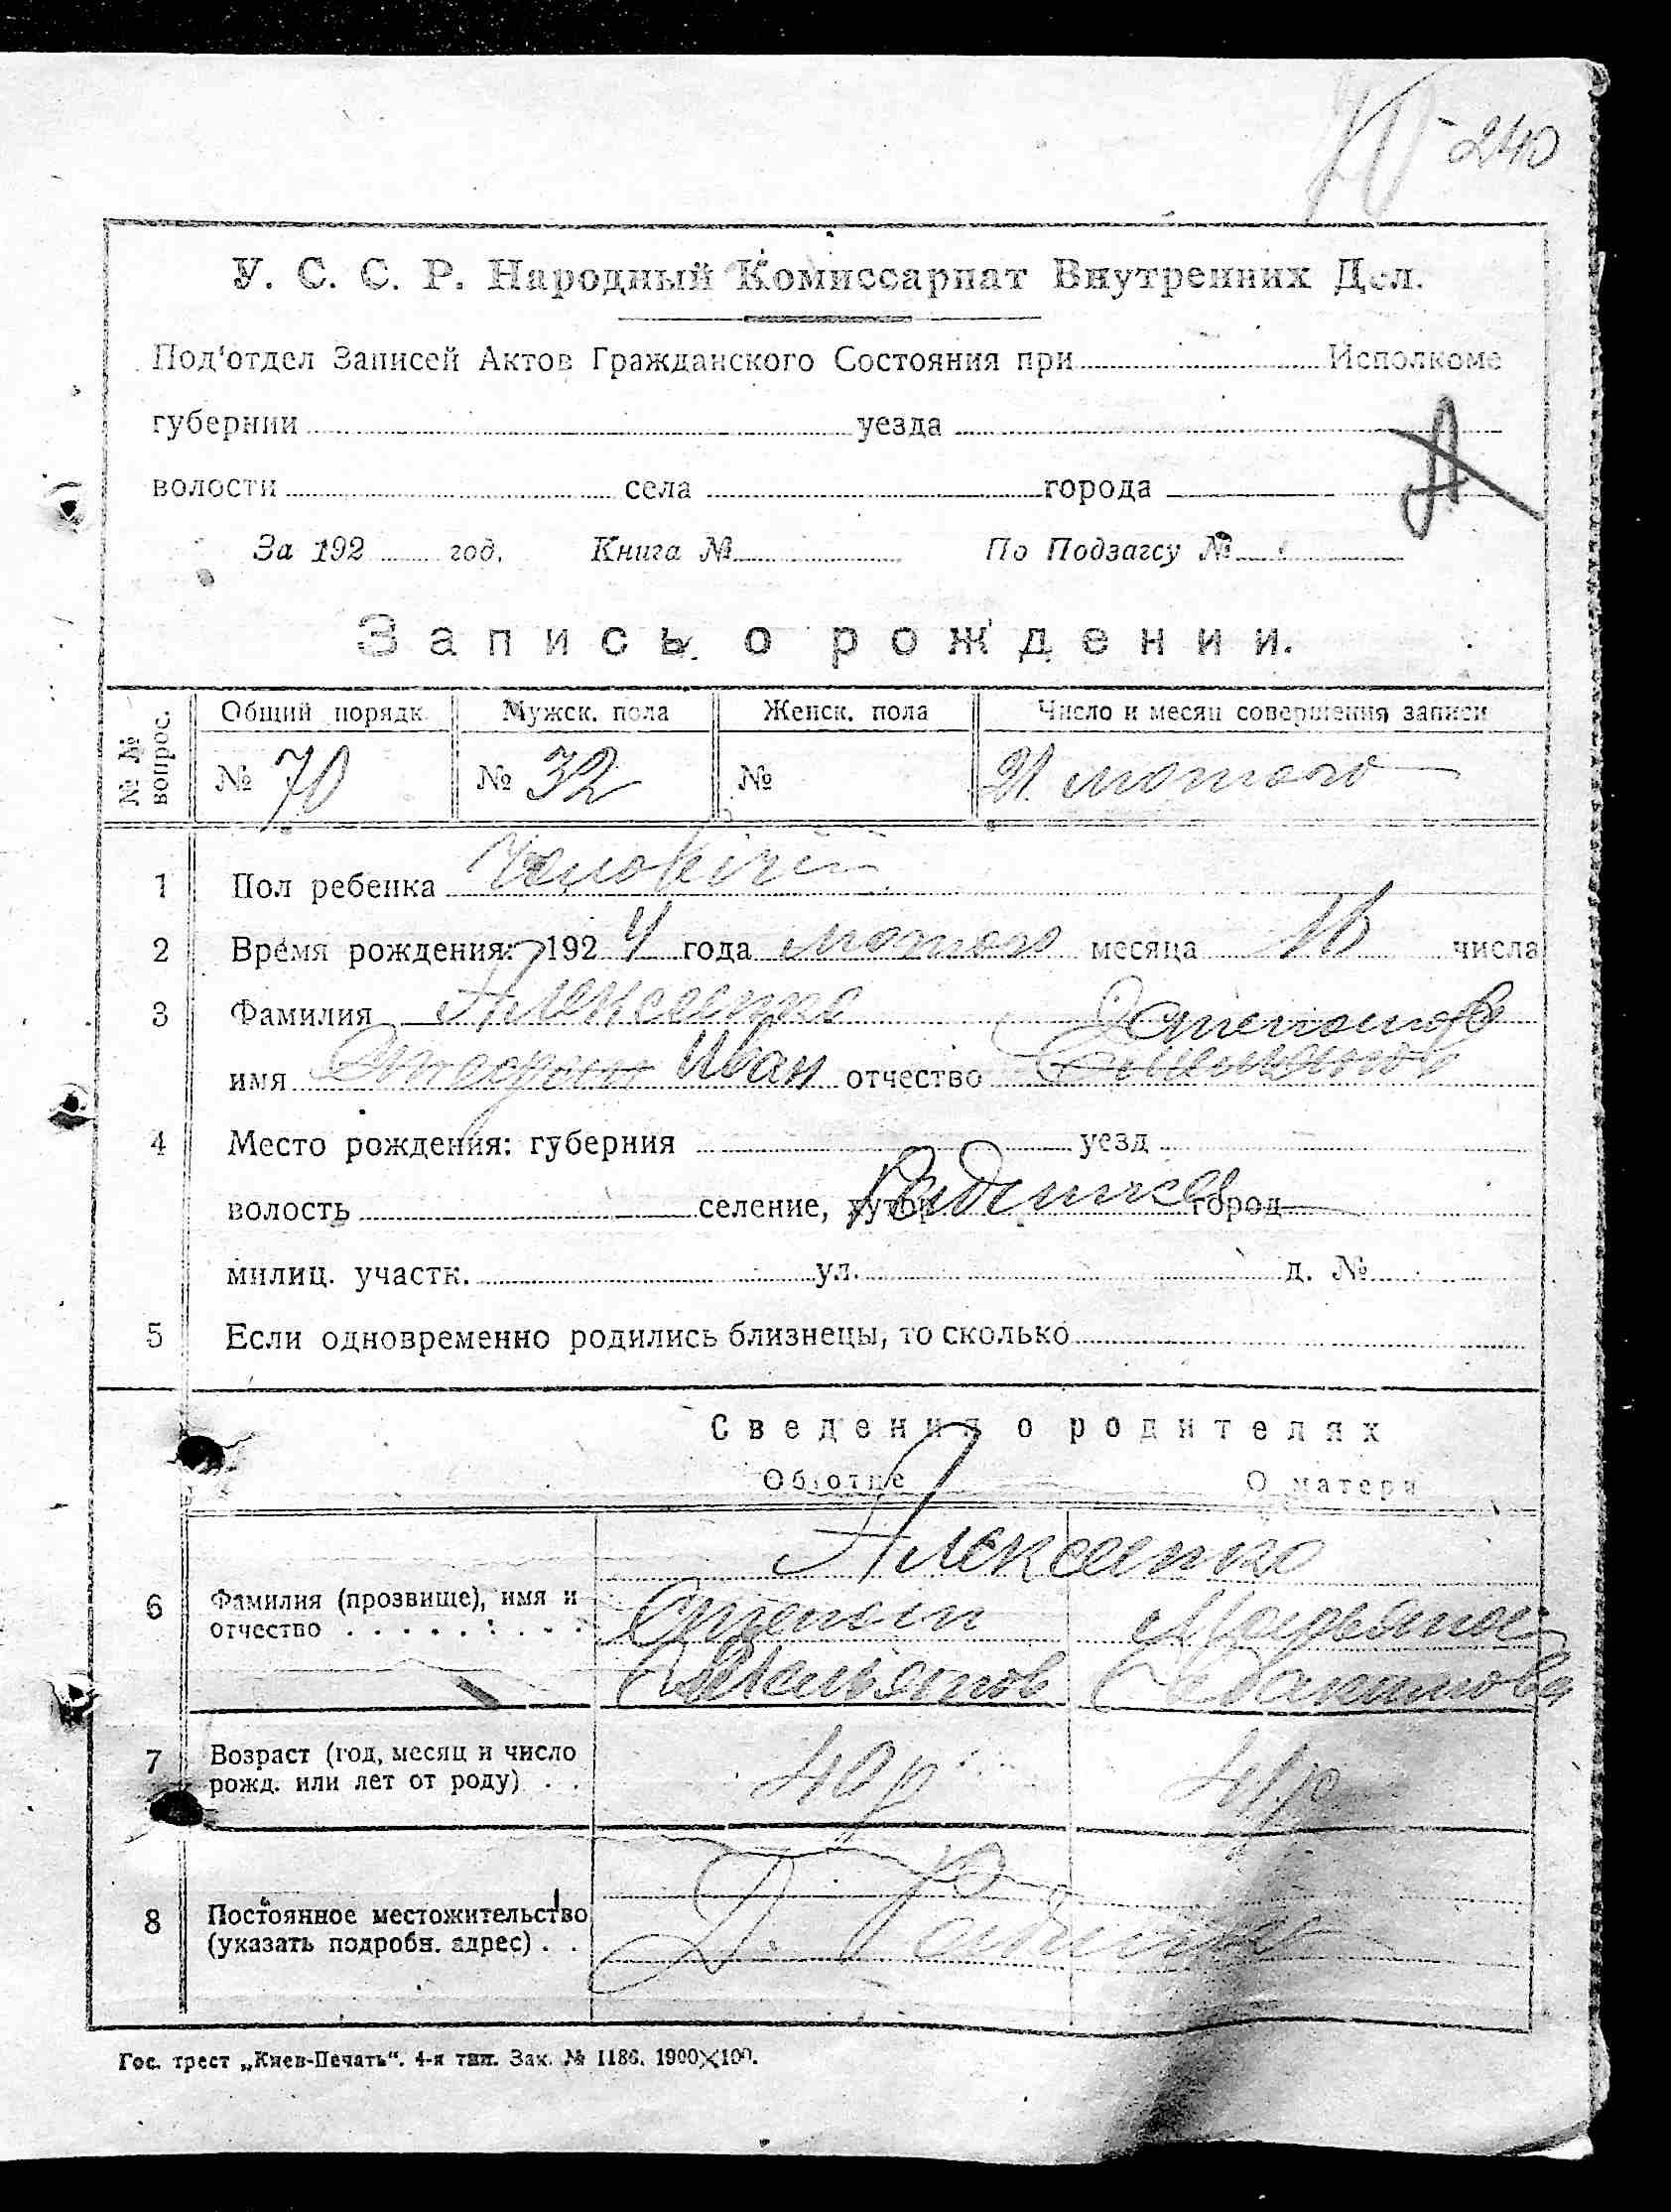 240
У. С. С. Р. Народный Комиссариат Внутренних Дел.
Под'отдел Записей Актов Гражданского Состояния при Исполкоме
губернии уезда
волости села города
А
За 192 год. Книга № По Подзагсу №
Запись о рождении.
№№ вопрос. Общий порядк. Мужск. пола Женск. пола Число и месяц совершения записи
№ 70 № 32 № 21 лютого
1 Пол ребенка Чоловічій
2 Время рождения: 1924 года лютого месяца 16 числа
3 Фамилия Алексеенко Степанов
имя Иван отчество
4 Место рождения: губерния уезд
волость селение, хутор город
милиц. участк. ул. д. №
5 Если одновременно родились близнецы, то сколько
Сведения о родителях
Об отце О матери
Алексеенко
6 Фамилия (прозвище), имя и Степан Марьяна
отчество Емельянов
7 Возраст (год, месяц и число 40 р 41 р
рожд. или лет от роду)
8 Постоянное местожительство
(указать подробн. адрес)
Гос. трест „Киев-Печать“. 4-я тип. Зак. № 1186. 1900×100.